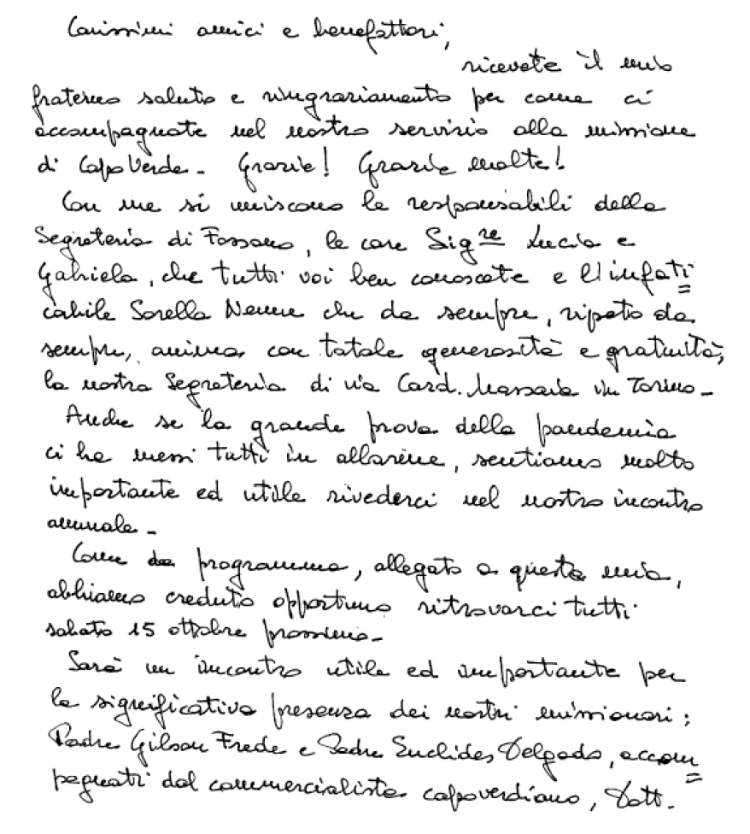 Carissimi amici e benefattori,
ricevete il mio
fraterno saluto e ringraziamento per come ci
accompagnate nel nostro servizio alla missione
di Capo Verde. Grazie! Grazie molte!
Con me si uniscono le responsabili della
Segreteria di Fossano, le care Sig.re Lucia e
Gabriela, che tutti voi ben conoscete e l'infati=
cabile Sorella Nemme che da sempre, ripeto da
sempre, anima con totale generosità e gratuità,
la nostra Segreteria di via Card. Massaia in Torino.
Anche se la grande prova della pandemia
ci ha messi tutti in allarme, sentiamo molto
importante ed utile rivederci nel nostro incontro
annuale.
Come da programma, allegato a questa mia,
abbiamo creduto opportuno ritrovarci tutti
sabato 15 ottobre prossimo.
Sarà un incontro utile ed importante per
la significativa presenza dei nostri missionari:
Padre Gilson Frede e Padre Euclides Delgado, accom=
pagnati dal commercialista capoverdiano, Dott.